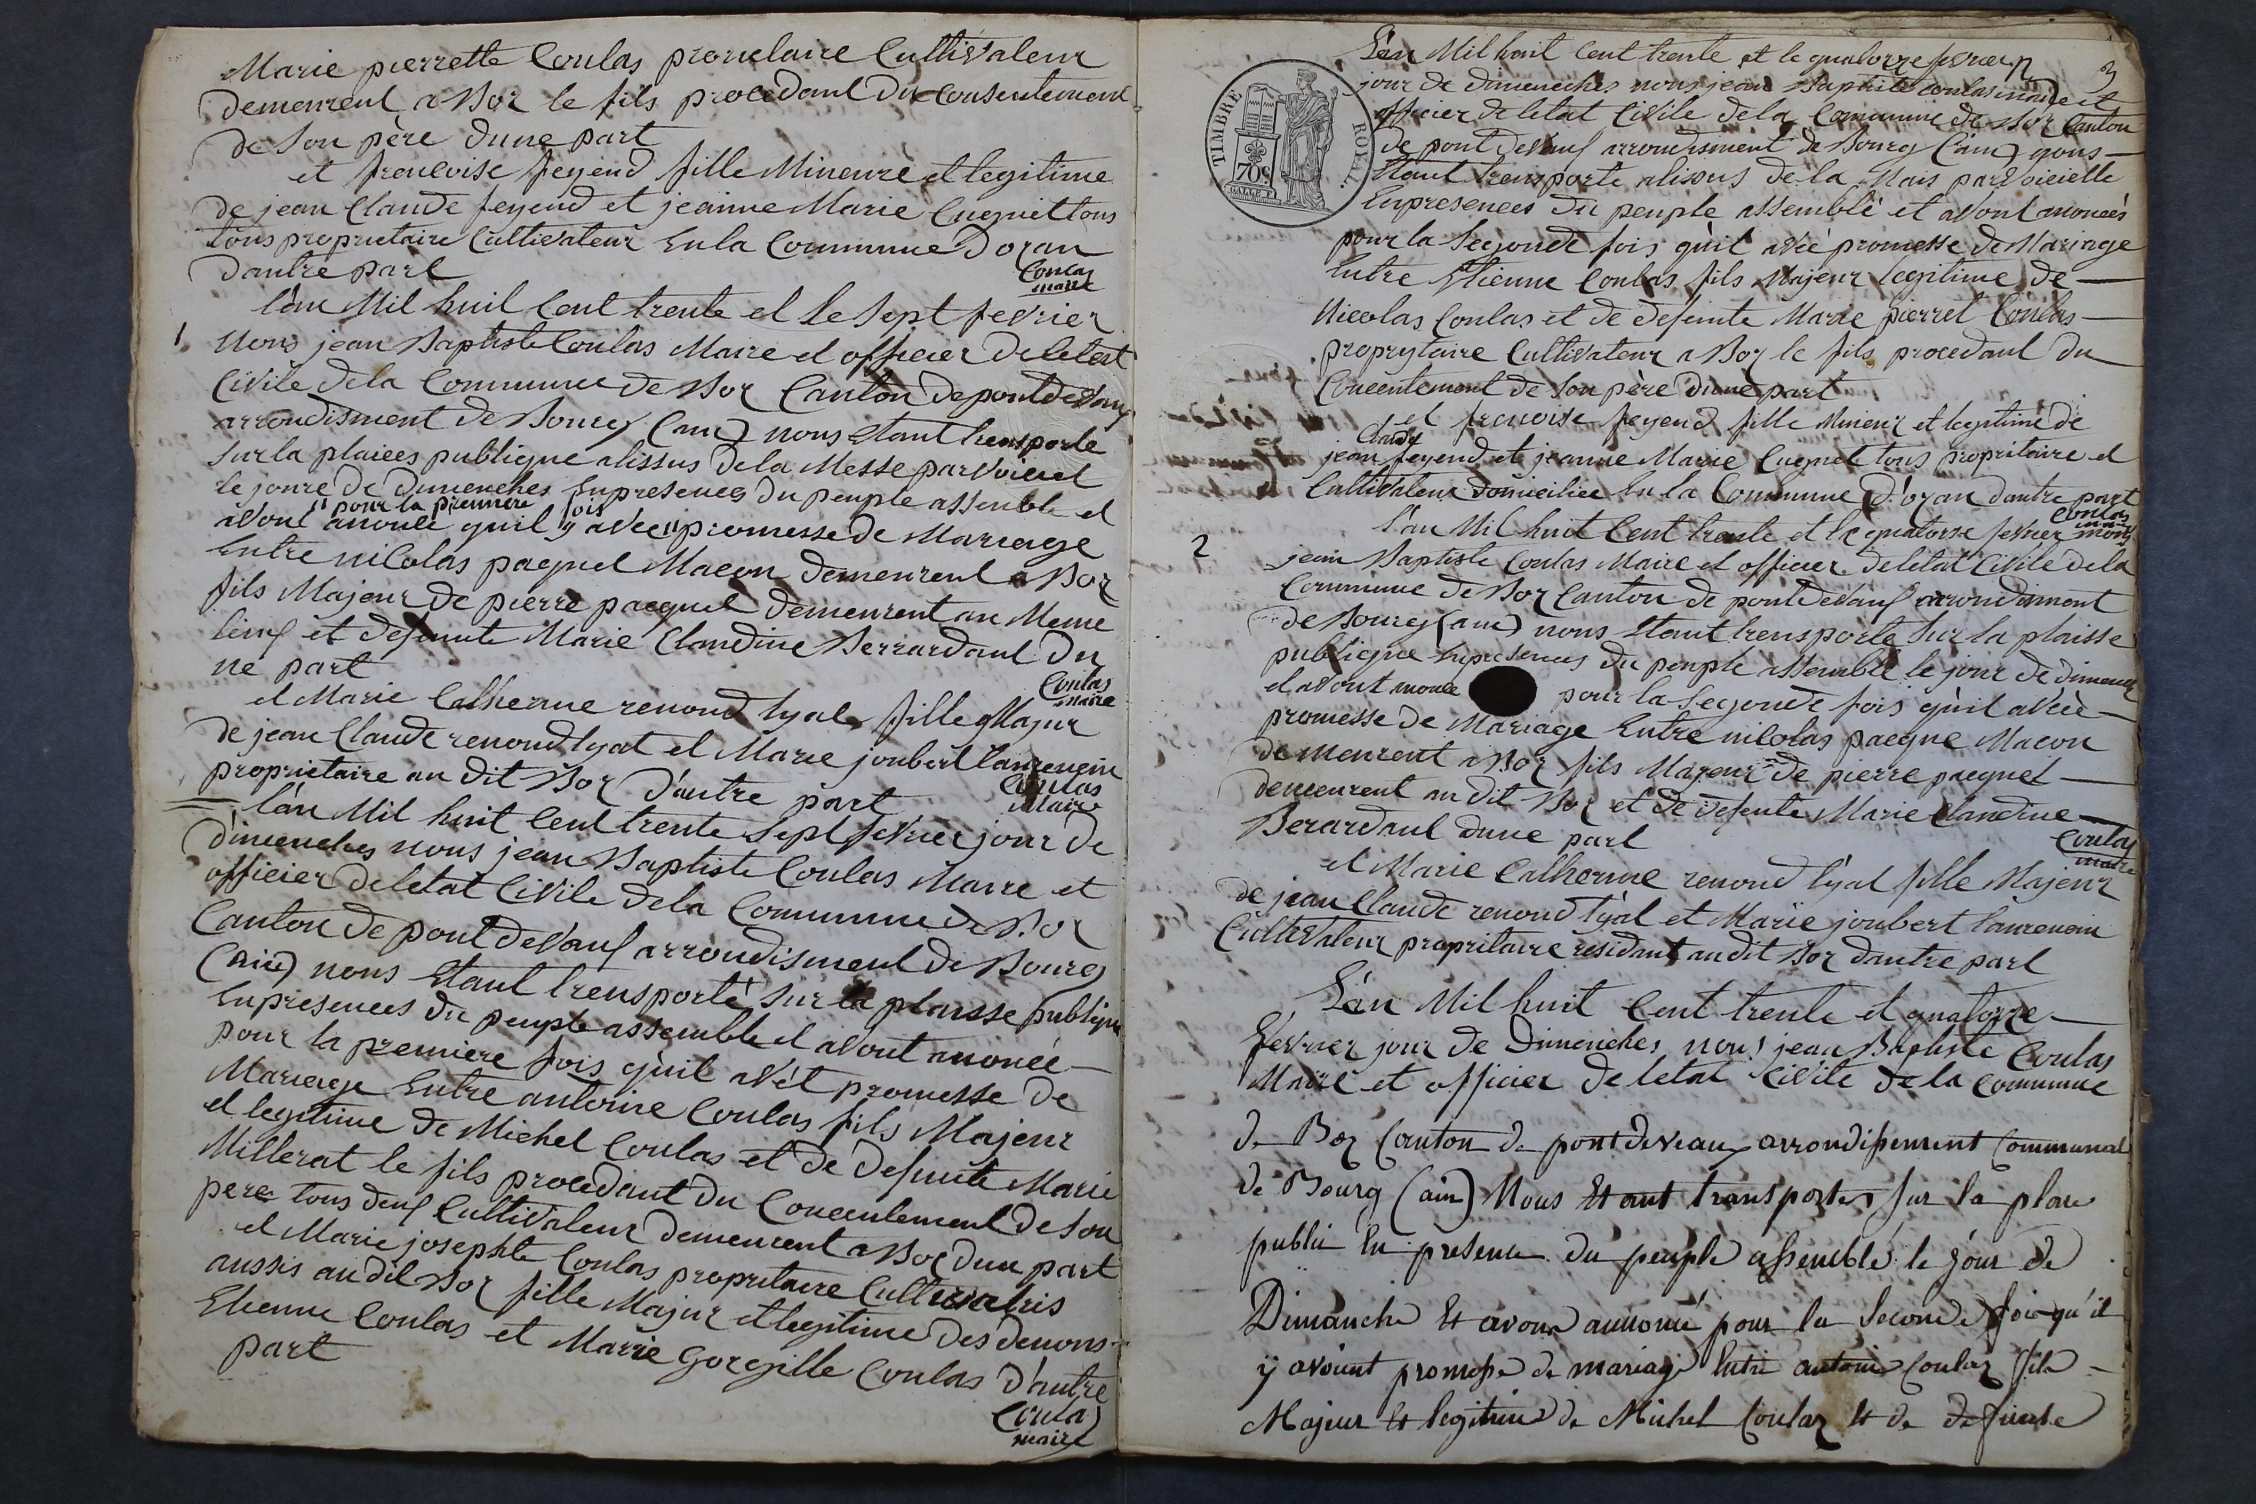 Marie pierrette Coulas proprietaire Cultivateur
demeurent a Boz le fils procedant du consentement
de Son père dune part
et francoise feyend fille Mineure et legitime
de jean Claude feyend et jeanne Marie Cuegniet tous
tous proprietaire Cultivateur En la Commune Dozan
dautre part
Coulas
maire
1
lan Mil huit Cent trente et le Sept fevrier
Nous jean Baptiste Coulas Maire et officier De letat
Civile dela Commune de Boz Canton de pontdeVaux
arrondisment de Bourg (ain) nous Etant trensporté
Sur la plaices publique alissus dela Messe parvoiciel
le joure De dimenches Enpresences du peuple assemblé et
avont anoncé pour la premiere fois quil y avée promesse de Mariage
Entre nicolas pacquel Macon demeurent a Boz
fils Majeur de pierre pacquel demeurent au Meme
lieux et defeunte Marie Claudine Berrardant Du
ne part
Coulas
maire
et Marie Catherine renoud lyal fille Majeur
de jean Claude renoud lyat et Marie joubert laurencin
proprietaire au dit Boz d'autre part
Coulas
Maire
l'an Mil huit Cent trente Sept fevrier jour de
dimenches nous jean Baptiste Coulas Maire et
officier De letat Civile dela Commune de Boz
Canton de pont deVaux arrondisment de Bourg
(ain) nous Etant trensporté Sur la plaisse publique
Enpresences du peuple assemble et avont anoncé
pour la premiere fois qu'il avét promesse de
Mariage Entre antoine Coulas fils Majeur
et legitime de Michel Coulas et de defunte Marie
Millerat le fils procedant du Concentement de Son
pere tous deux Cultivateur demeurent a Boz dun part
et Marie josephte Coulas propritaire Cultivatris
aussis audit Boz fille Majur et legitime des denons
Etienne Coulas et Marie Goregille Coulas d'autre
part
Coulas
maire
3
TIMBRE ROYAL
70c
L'an Mil huit Cent trente et le quatorze fevrier
jour de dimeneches nous jean Baptiste Coulas maire et
officier de letat Civile dela Commune de Boz Canton
de pont deVaux arrondisment de Bourg (ain) nous
Etant trensporte alissus de la Mais parvoicielle
Enpresences du peuple assemblé et avont anoncés
pour la Segonde fois qu'il avée promesse de Mariage
Entre Etienne Coulas fils Majeur legitime de
Nicolas Coulas et de defeunte Marie pierret Coulas
propriytaire Cultivateur a Boz le fils procedant du
Concentement de Son père dune part
et francoise feyend fille Mineur et legitime de
jean Claude feyend et jeanne Marie Cuegnet tous propritaire et
Cultivateur domiciliee En la Commune d'ozan dautre part
Coulas
maire
2
l'an Mil huit Cent trente et le quatorse fevrier nous
jean Baptiste Coulas Maire et officier De létat Civile dela
Commune de Boz Canton de pontdevaux arrondisment
de Bourg (ain) nous Etant trensporté Sur la plaisse
publicque Enpresences du peuple assemblé le jour de dimenche
et avont anoncé pour la Segonde fois qu'il avéé
promesse de Mariage Entre nicolas pacque Macon
demeurent a Boz fils Majeur de pierre pacquel
demeurent au dit Boz et de defeunte Marie Claudine
Berardant dune part
Coulas
maire
et Marie Catherine renoud lyal fille Majeur
de jean Claude renoud lyal et Marie joubert laurencin
Cultivateur propritaire residant audit Boz dautre part
L'an Mil huit Cent trente et quatorze
fevrier jour de Dimenches nous jean Baptiste Coulas
Maire et officier de letat Civile de la Commune
de Boz Canton de pontdeveaux arrondissement Communal
de Bourg (ain) Nous Etant transportés sur la place
public En presence du peuple assemblé le jour de
Dimanche Et avons annoncé pour la Seconde fois qu'il
y avoint promesse de mariage Entre antoine Coulaz fils
Majeur Et legitime de Michel Coulaz Et de defunte